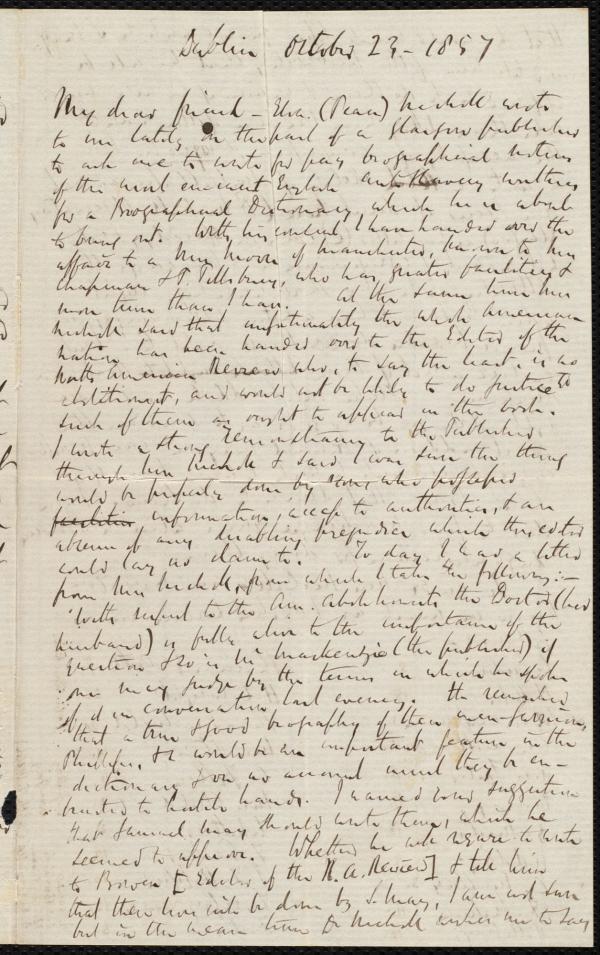 Dublin October 23 - 1857
My dear friend - Eliza. (Peace) Nichol wrote
to me lately on the part of a Glasgow publisher
to ask me to write for pay biographical notices
of the most eminent English antislavery writers
for a Biographical Dictionary, which he is about
to bring out. With his consent, I have handed over the
affair to a Mrs Moore of Manchester, known to Mrs
Chapman & P. Pillsbury, who has greater facilities &
more time than I have. At the same time Mrs
Nichol said that unfortunately the whole American
nation has been handed over to the Editor of the
North American Review who, to say the least, is no
abolitionist, and would not be likely to do justice to
such of them as ought to appear in the book.
I wrote a strong remonstrance to the Publisher
through Mrs Nichol & said I was sure the thing
would be properly done by some who possessed
facilities information, access to authorities, & an
absence of any disabling prejudice which this editor
could lay no claim to. To day I had a letter
from Mrs Nichol, from which I take the following: -
"With respect to the Am. Abolitionists the Doctor (her
husband) is fully alive to the importance of the
question & so is Mr Mackenzie (the publisher) if
one may judge by the terms in which he spoke
of it in conversation last evening. He remarked
that a true & good biography of these men - Garrison,
Phillips, &c would be an important feature in the
dictionary & on no account must they be en-
trusted to hostile hands. I named your suggestion
that Samuel May should write them, which he
seemed to approve. Whether he will require to write
to Bowen [Editor of the N. A. Review] & tell him
that these lives will be done by S. May, I am not sure
but in the mean time Dr Nichol wishes me to say